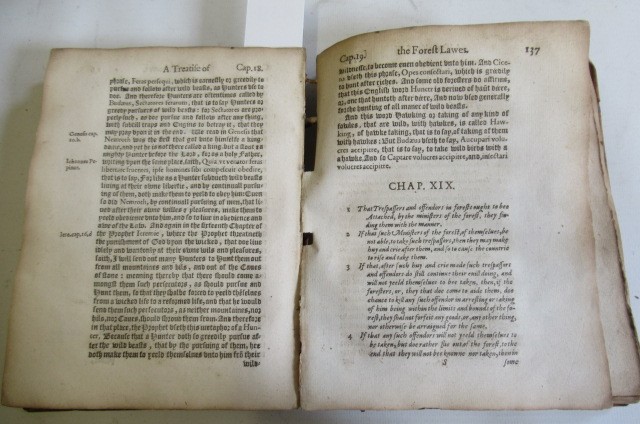 A Treatise of Cap.18.
phrase, Feras persequi, which is earnestly or greedily to
pursue and follow after wild beasts, as Hunters use to
doe. And therefore Hunters are oftentimes called by
Budæus, Sectatores ferarum, that is to say Hunters or
greedy pursuers of wild beasts: for Sectatores are properly
such, as doe pursue and follow after any thing,
with subtill traps and Engins to betray it, that they
may pray upon it in the end. We read in Genesis that
Genesis cap.
Nemroth was the first that got unto himselfe a kingdome,
and yet he is not there called a king, but a stout or
mighty Hunter before the Lord, for as a holy Father,
writing upon the same saith, Quia venatur feras
libertate fruentes, ipse homines sibi compescuit obedire,
that is to say, For like as a Hunter subdueth wild beasts
living at their owne libertie, and by continuall pursuing
of them, doth make them to yeeld to obey him: Even
so did Nemroth, by continuall pursuing of men, that lived
after their owne willes & pleasures, make them to
yeeld obedience unto him, and so to live in obedience and
awe of the Lord. And again in the sixteenth Chapter of
Jerem.16.16
the Prophet Jeremie, where the Prophet threatneth
the punishment of God upon the wicked, that doe live
idlely and wantonly at their owne wils and pleasures,
saith, I will send out many Hunters to Hunt them out
from all mountaines and hils, and out of the Caves
of stone: meaning thereby that there should come amongst
them such persecutors, as should pursue and
Hunt them, so that they shall be forced to yeeld theselves
from a wicked life to a reformed life, and that he would
send them such persecutors, as neither mountaines, nor
hils, nor Caves, should shrowd them from. And therefore
in that place, the Prophet useth this metaphor of a Hunter,
Because that a Hunter doth so greedily pursue after
the wild beasts, that by the pursuing of them, hee
doth make them to yeeld themselves unto him fro their
wild-
Cap.19. the Forest Lawes. 137
wildnesse, to become even obedient unto him. And Cicero
useth this phrase, Opes consectari, which is greedily
to hunt after riches. And some old foresters do affirme,
that this English word Hunter is derived of haut deer,
or, one that hunteth after deere, and now is used generally
for the hunting of all maner of wild beasts.
And this word Hawking or taking of any kind of
foules, that are wild, with hawkes, is called Hawking,
of hawke taking, that is to say, of taking of them
with hawkes: But Budæus useth to say, Accipitari volucres
accipitre, that is to say, to take wild birds with a
hawke. And so Captare volucres accipitre, and, insectari
volucres accipitre.
CHAP. XIX.
1 That Trespassers and offenders in forests ought to bee
Attached, by the ministers of the forest, they finding
them with the manner.
2 If that such Ministers of the forest, of themselves, be
not able, to take such trespassers, then they may make
huy and crie after them, and so to cause the countrie
to rise and take them.
3 If that, after such huy and crie made such trespassers
and offenders do still continue their evill doing, and
will not yeeld themselves to bee taken, then, if the
foresters, or, they that doe come to aide them, doe
chance to kill any such offender in arresting or taking
of him being within the limits and bounds of the forest,
they shal not forfeit any goods, or, any other thing,
nor otherwise be arraigned for the same.
4 If that any such offenders will not yeeld themselves to
be taken, but doe rather flie out of the forest, to the
end that they will not bee knowne nor taken, then be
S some